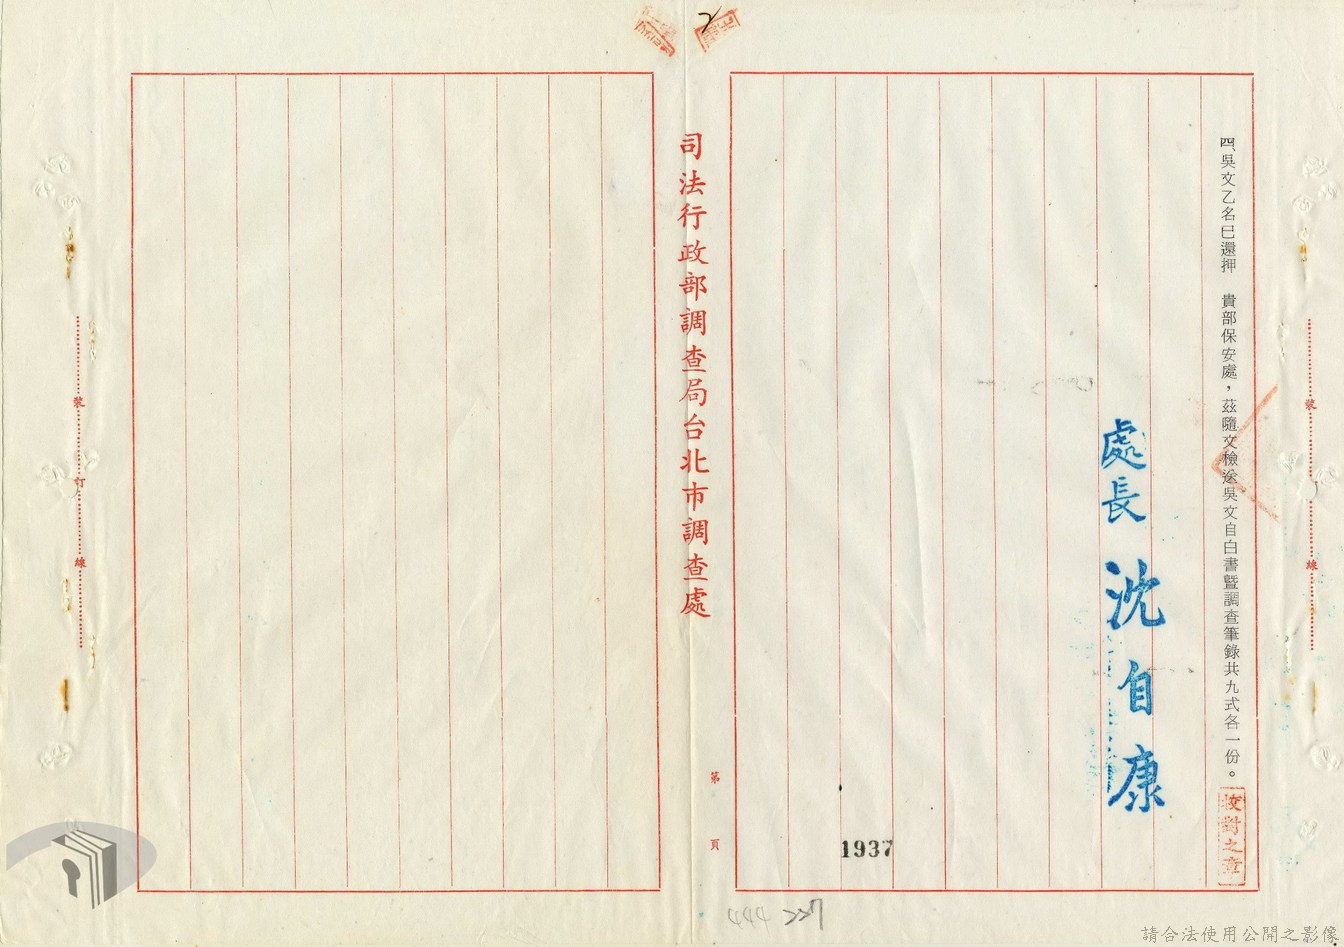 四、吳文乙名已還押　貴部保安處，茲隨文檢送吳文自白書暨調查筆錄共九式各一份。
校對之章
處長 沈自康
1937
司法行政部調查局台北市調查處
第 頁
裝 訂 線
裝 線
請合法使用公開之影像